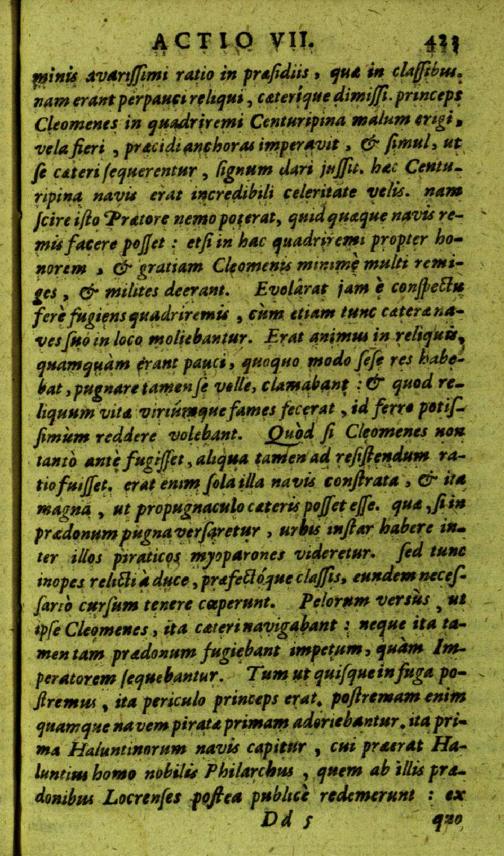 ACTIO VII. 423
minis avarissimi ratio in præsidiis, quæ in classibus.
nam erant perpauci reliqui, cæterique dimissi. princeps
Cleomenes in quadriremi Centuripina malum erigi,
vela fieri, præcidi anchoras imperavit, & simul, ut
se cæteri sequerentur, signum dari jussit. hæc Centu-
ripina navis erat incredibili celeritate velis. nam
scire isto Prætore nemo poterat, quid quæque navis re-
mis facere posset: etsi in hac quadriremi propter ho-
norem, & gratiam Cleomenis minimè multi remi-
ges, & milites deerant. Evolarat jam è conspectu
ferè fugiens quadriremis, cùm etiam tunc cæteræ na-
ves suo in loco moliebantur. Erat animus in reliquis,
quamquàm erant pauci, quoquo modo sese res habe-
bat, pugnare tamen se velle, clamabant: & quod re-
liquum vitæ viriúmque fames fecerat, id ferro potis-
simùm reddere volebant. Quòd si Cleomenes non
tantò antè fugisset, aliqua tamen ad resistendum ra-
tio fuisset. erat enim sola illa navis constrata, & ita
magna, ut propugnaculo cæteris posset esse. quæ, si in
prædonum pugna versaretur, urbis instar habere in-
ter illos piraticos myoparones videretur. sed tunc
inopes relicti à duce, præfectóque classis, eundem neces-
sariò cursum tenere cœperunt. Pelorum versùs, ut
ipse Cleomenes, ita cæteri navigabant: neque ita ta-
men tam prædonum fugiebant impetum, quàm Im-
peratorem sequebantur. Tum ut quisque in fuga po-
stremus, ita periculo princeps erat. postremam enim
quamque navem piratæ primam adoriebantur. ita pri-
ma Haluntinorum navis capitur, cui præerat Ha-
luntius homo nobilis Philarchus, quem ab illis præ-
donibus Locrenses postea publicè redemerunt: ex
Dd 5 quo